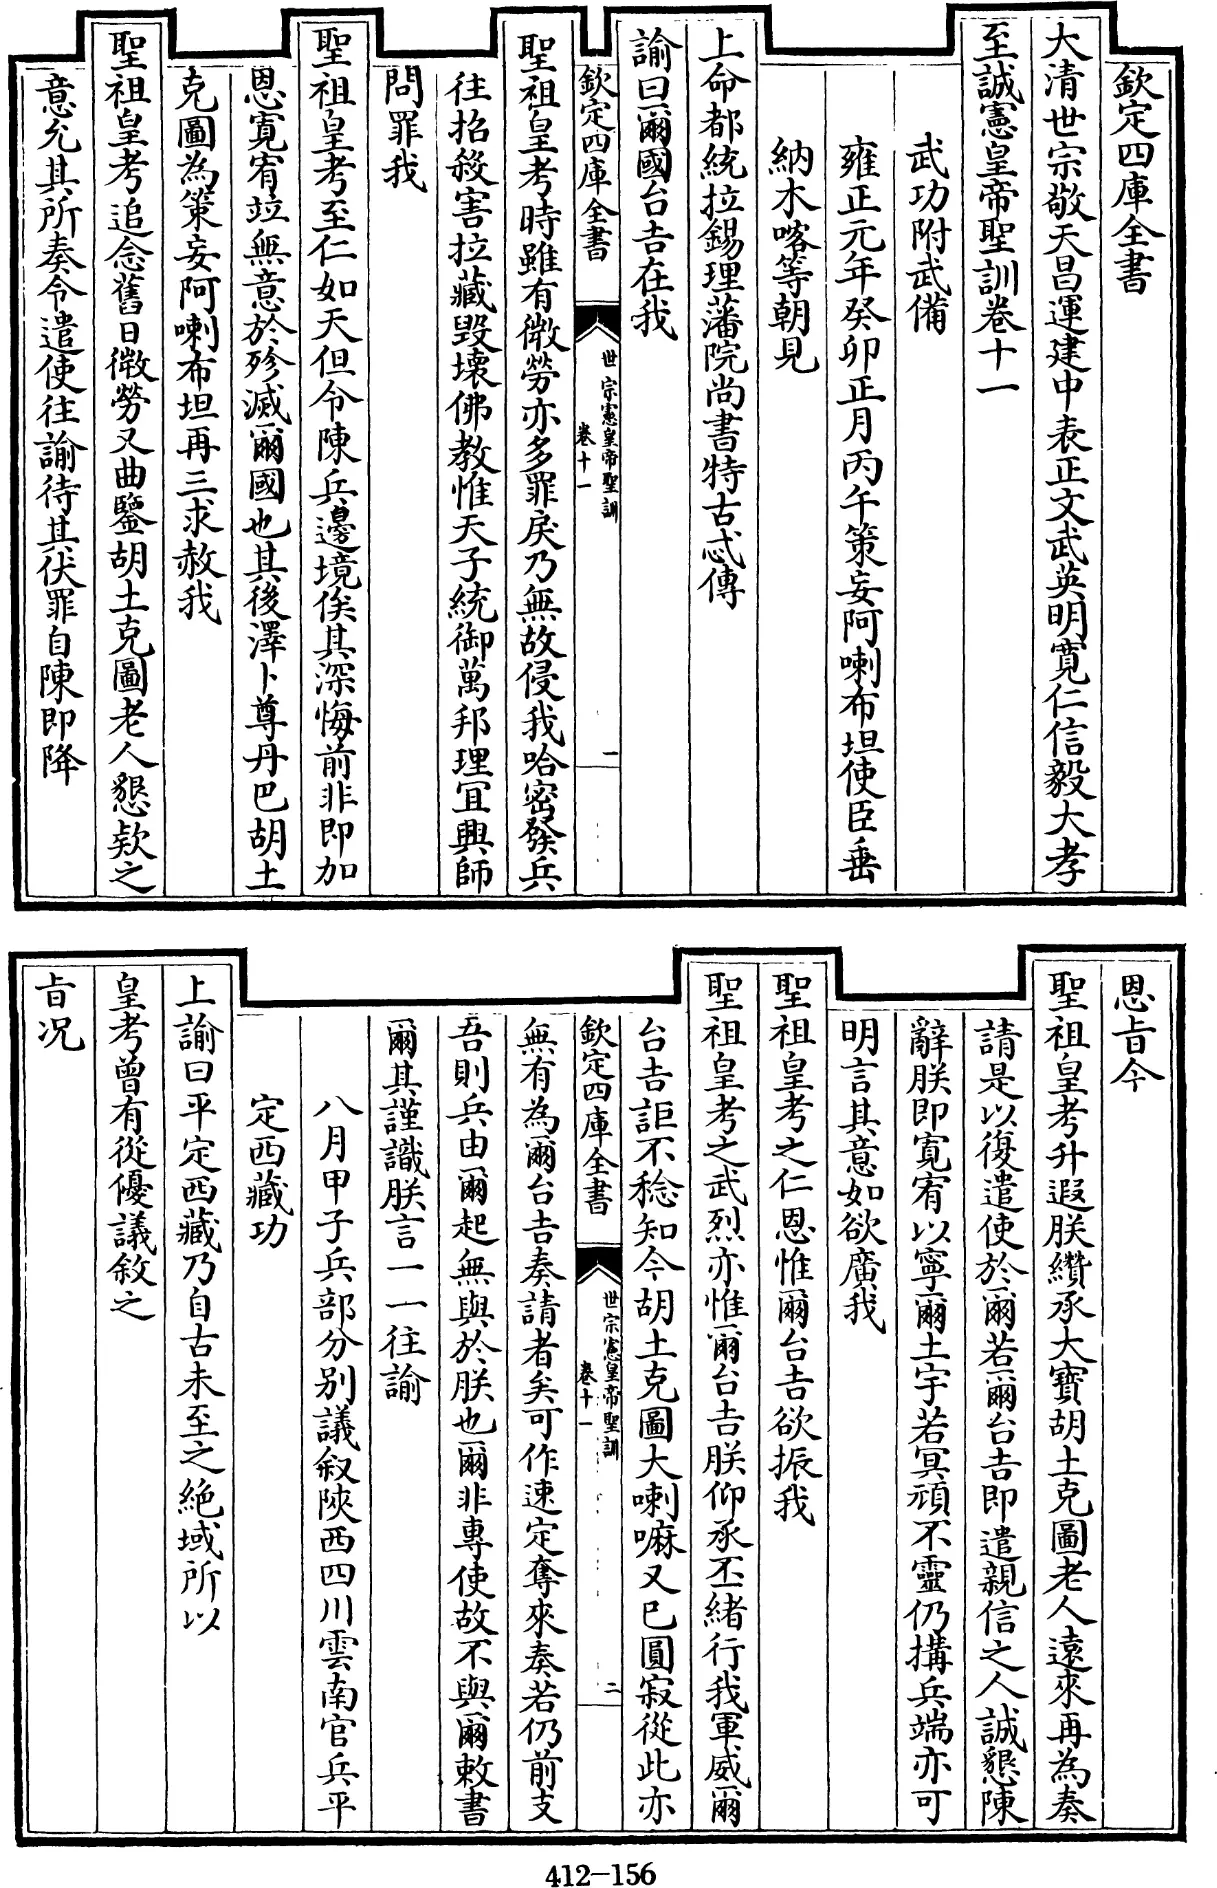 欽定四庫全書
大清世宗敬天昌運建中表正文武英明寛仁信毅大孝
至誠憲皇帝聖訓卷十一
武功附武備
雍正元年癸卯正月丙午策妄阿喇布坦使臣垂
納木喀等朝見
上命都統拉錫理藩院尚書特古忒傳
諭曰爾國台吉在我
欽定四庫全書
世宗憲皇帝聖訓
卷十一
一
聖祖皇考時雖有微勞亦多罪戾乃無故侵我哈密發兵
往招殺害拉藏毀壞佛教惟天子統御萬邦理宜興師
問罪我
聖祖皇考至仁如天但令陳兵邊境俟其深悔前非即加
恩寛宥竝無意於殄滅爾國也其後澤卜尊丹巴胡土
克圖為策妄阿喇布坦再三求赦我
聖祖皇考追念舊日微勞又曲鑒胡土克圖老人懇欵之
意允其所奏令遣使往諭待其伏罪自陳即降
恩旨今
聖祖皇考升遐朕纘承大寶胡土克圖老人遠來再為奏
請是以復遣使於爾若爾台吉即遣親信之人誠懇陳
辭朕即寛宥以寧爾土宇若冥頑不靈仍搆兵端亦可
明言其意如欲廣我
聖祖皇考之仁恩惟爾台吉欲振我
聖祖皇考之武烈亦惟爾台吉朕仰承丕緒行我軍威爾
台吉詎不稔知今胡土克圖大喇嘛又已圓寂從此亦
欽定四庫全書
世宗憲皇帝聖訓
卷十一
二
無有為爾台吉奏請者矣可作速定奪來奏若仍前支
吾則兵由爾起無與於朕也爾非專使故不與爾敕書
爾其謹識朕言一一往諭
八月甲子兵部分别議叙陜西四川雲南官兵平
定西藏功
上諭曰平定西藏乃自古未至之絶域所以
皇考曾有從優議敘之
旨况
412-156